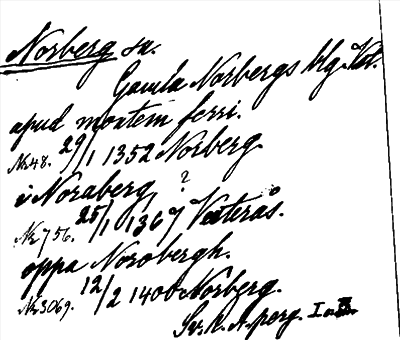 Norberg sn.
Gamla Norbergs blg. Vstl.
apud montem ferri.
Nr 48. 29/1 1352 Norberg.
i Noraberg ?
Nr 756. 25/1 1367 Västerås.
oppa Norobergh.
Nr 3069. 12/2 1400 Norberg.
Sv. R. A. perg. I